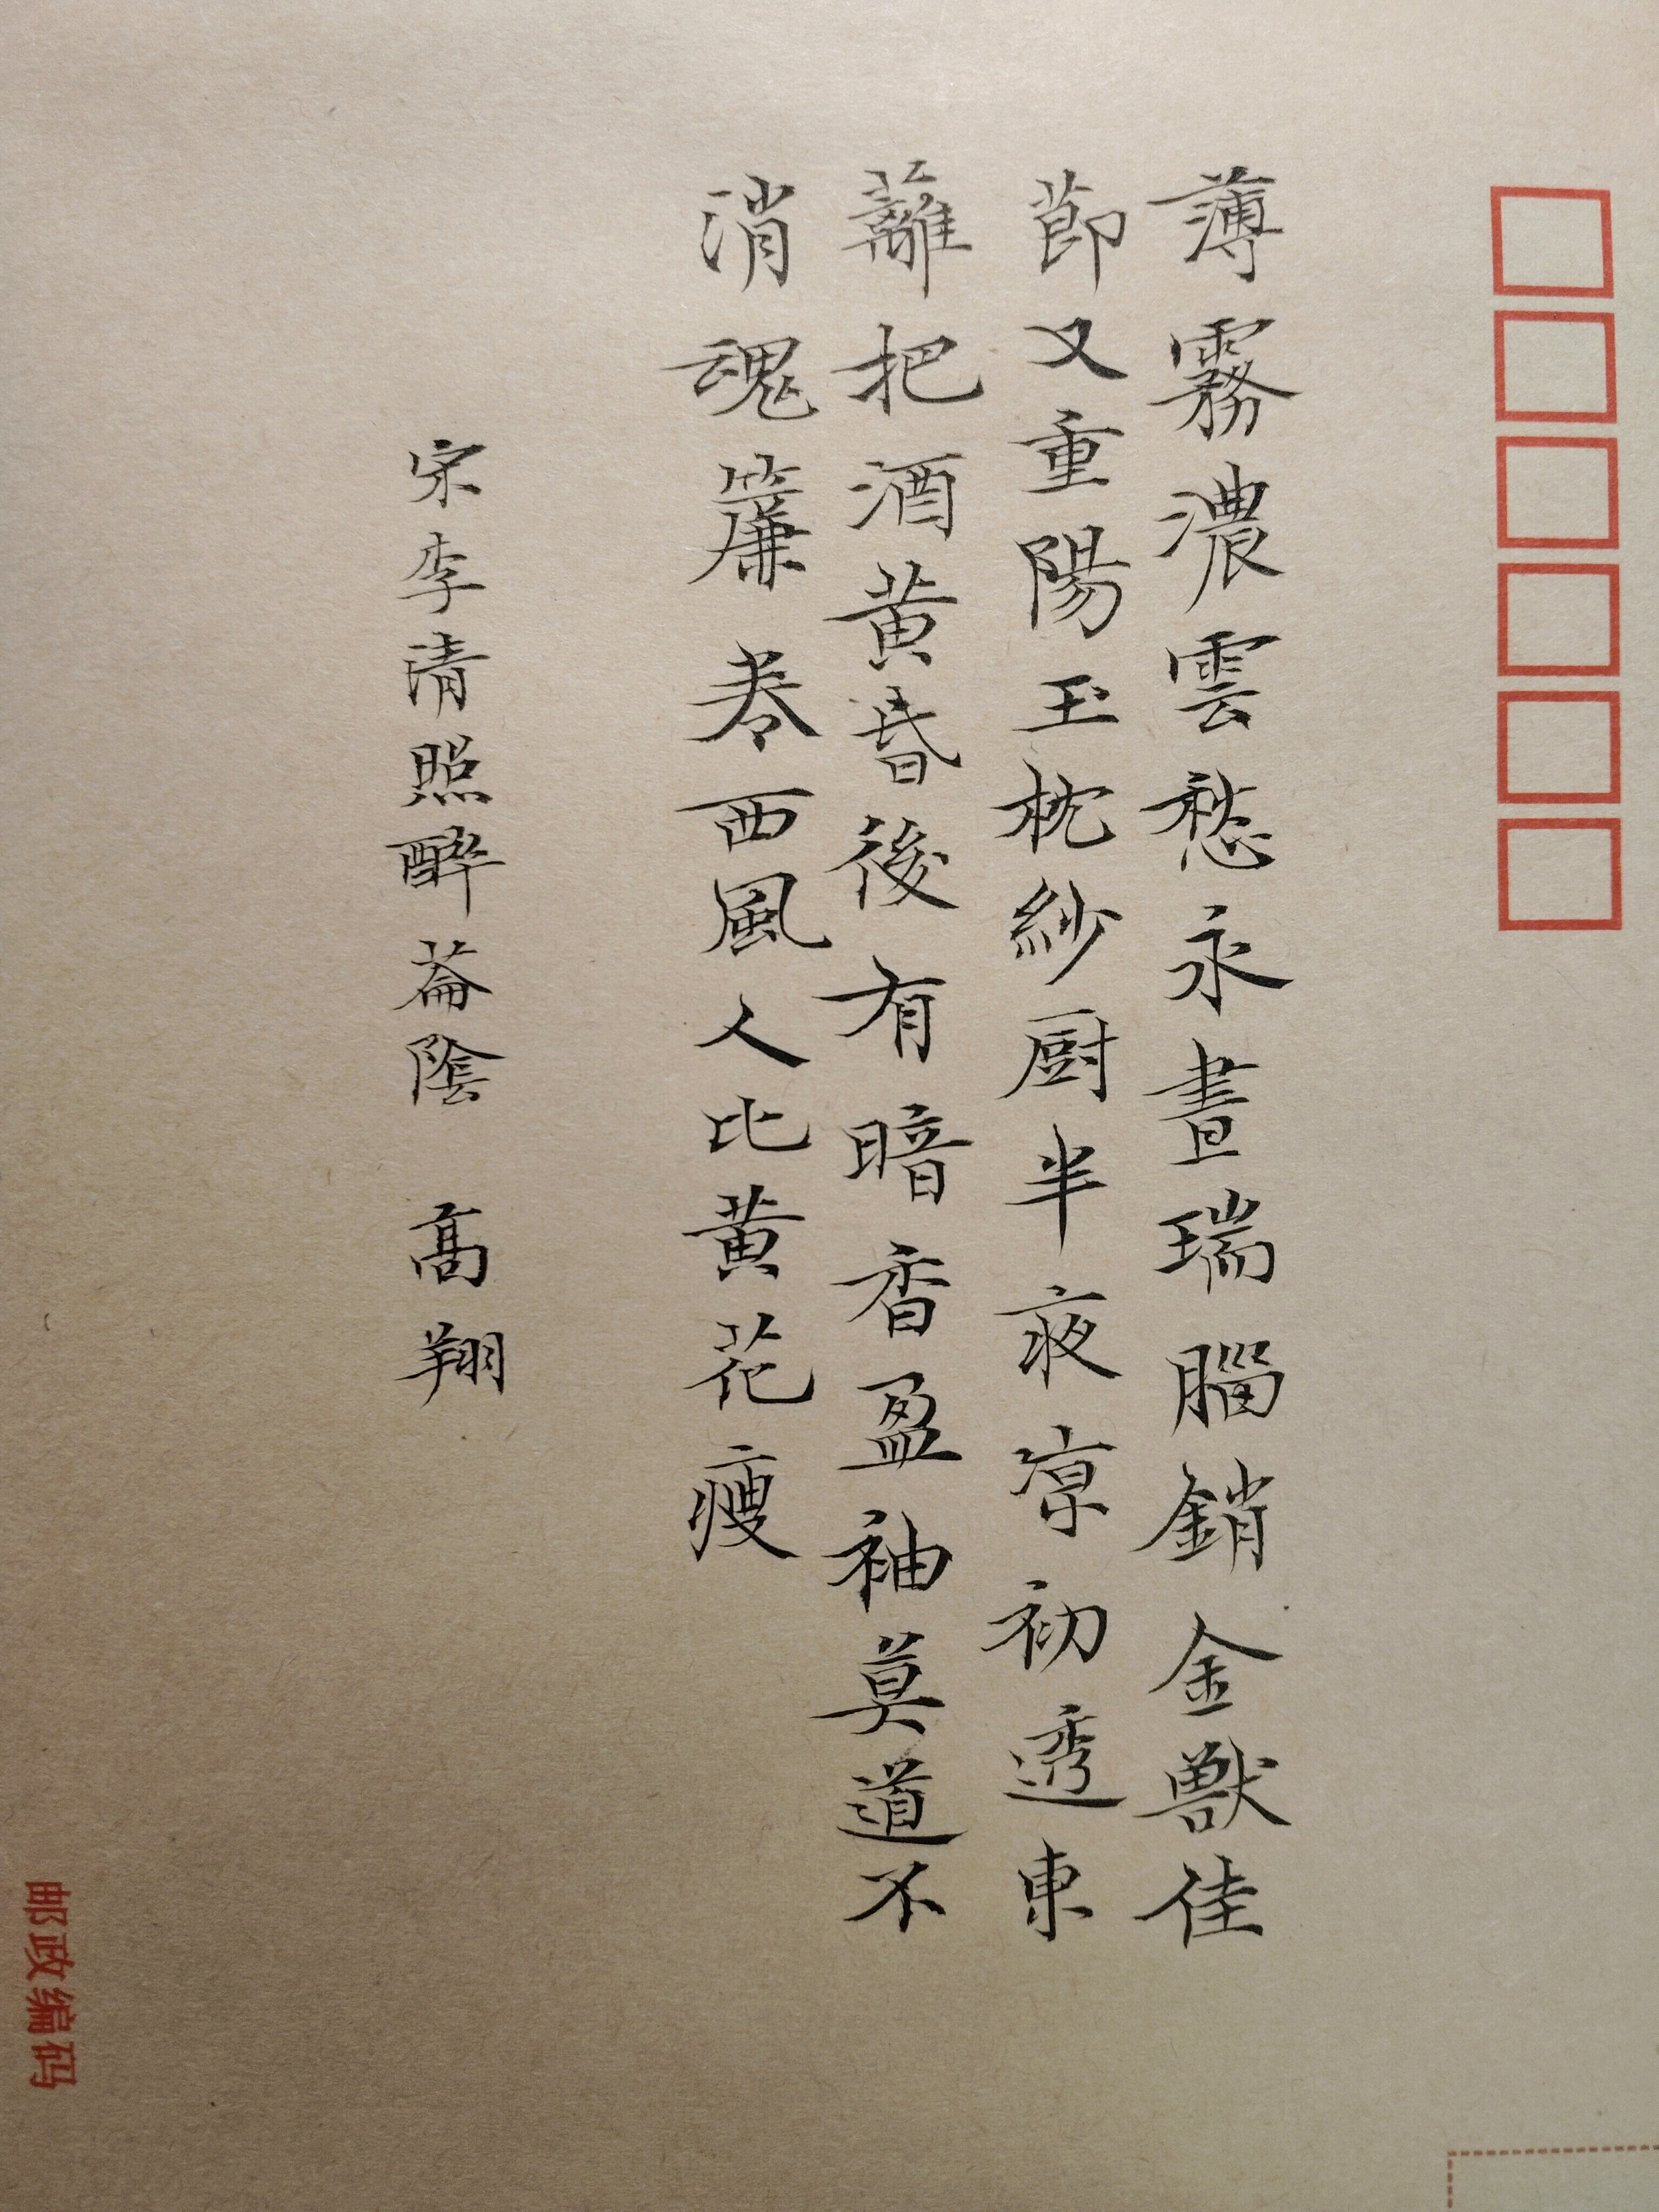 薄霧濃雲愁永晝瑞腦銷金獸佳
節又重陽玉枕紗厨半夜凉初透東
蘺把酒黃昏後有暗香盈袖莫道不
消魂簾卷西風人比黃花瘦
宋李清照醉花陰 高翔
邮政编码